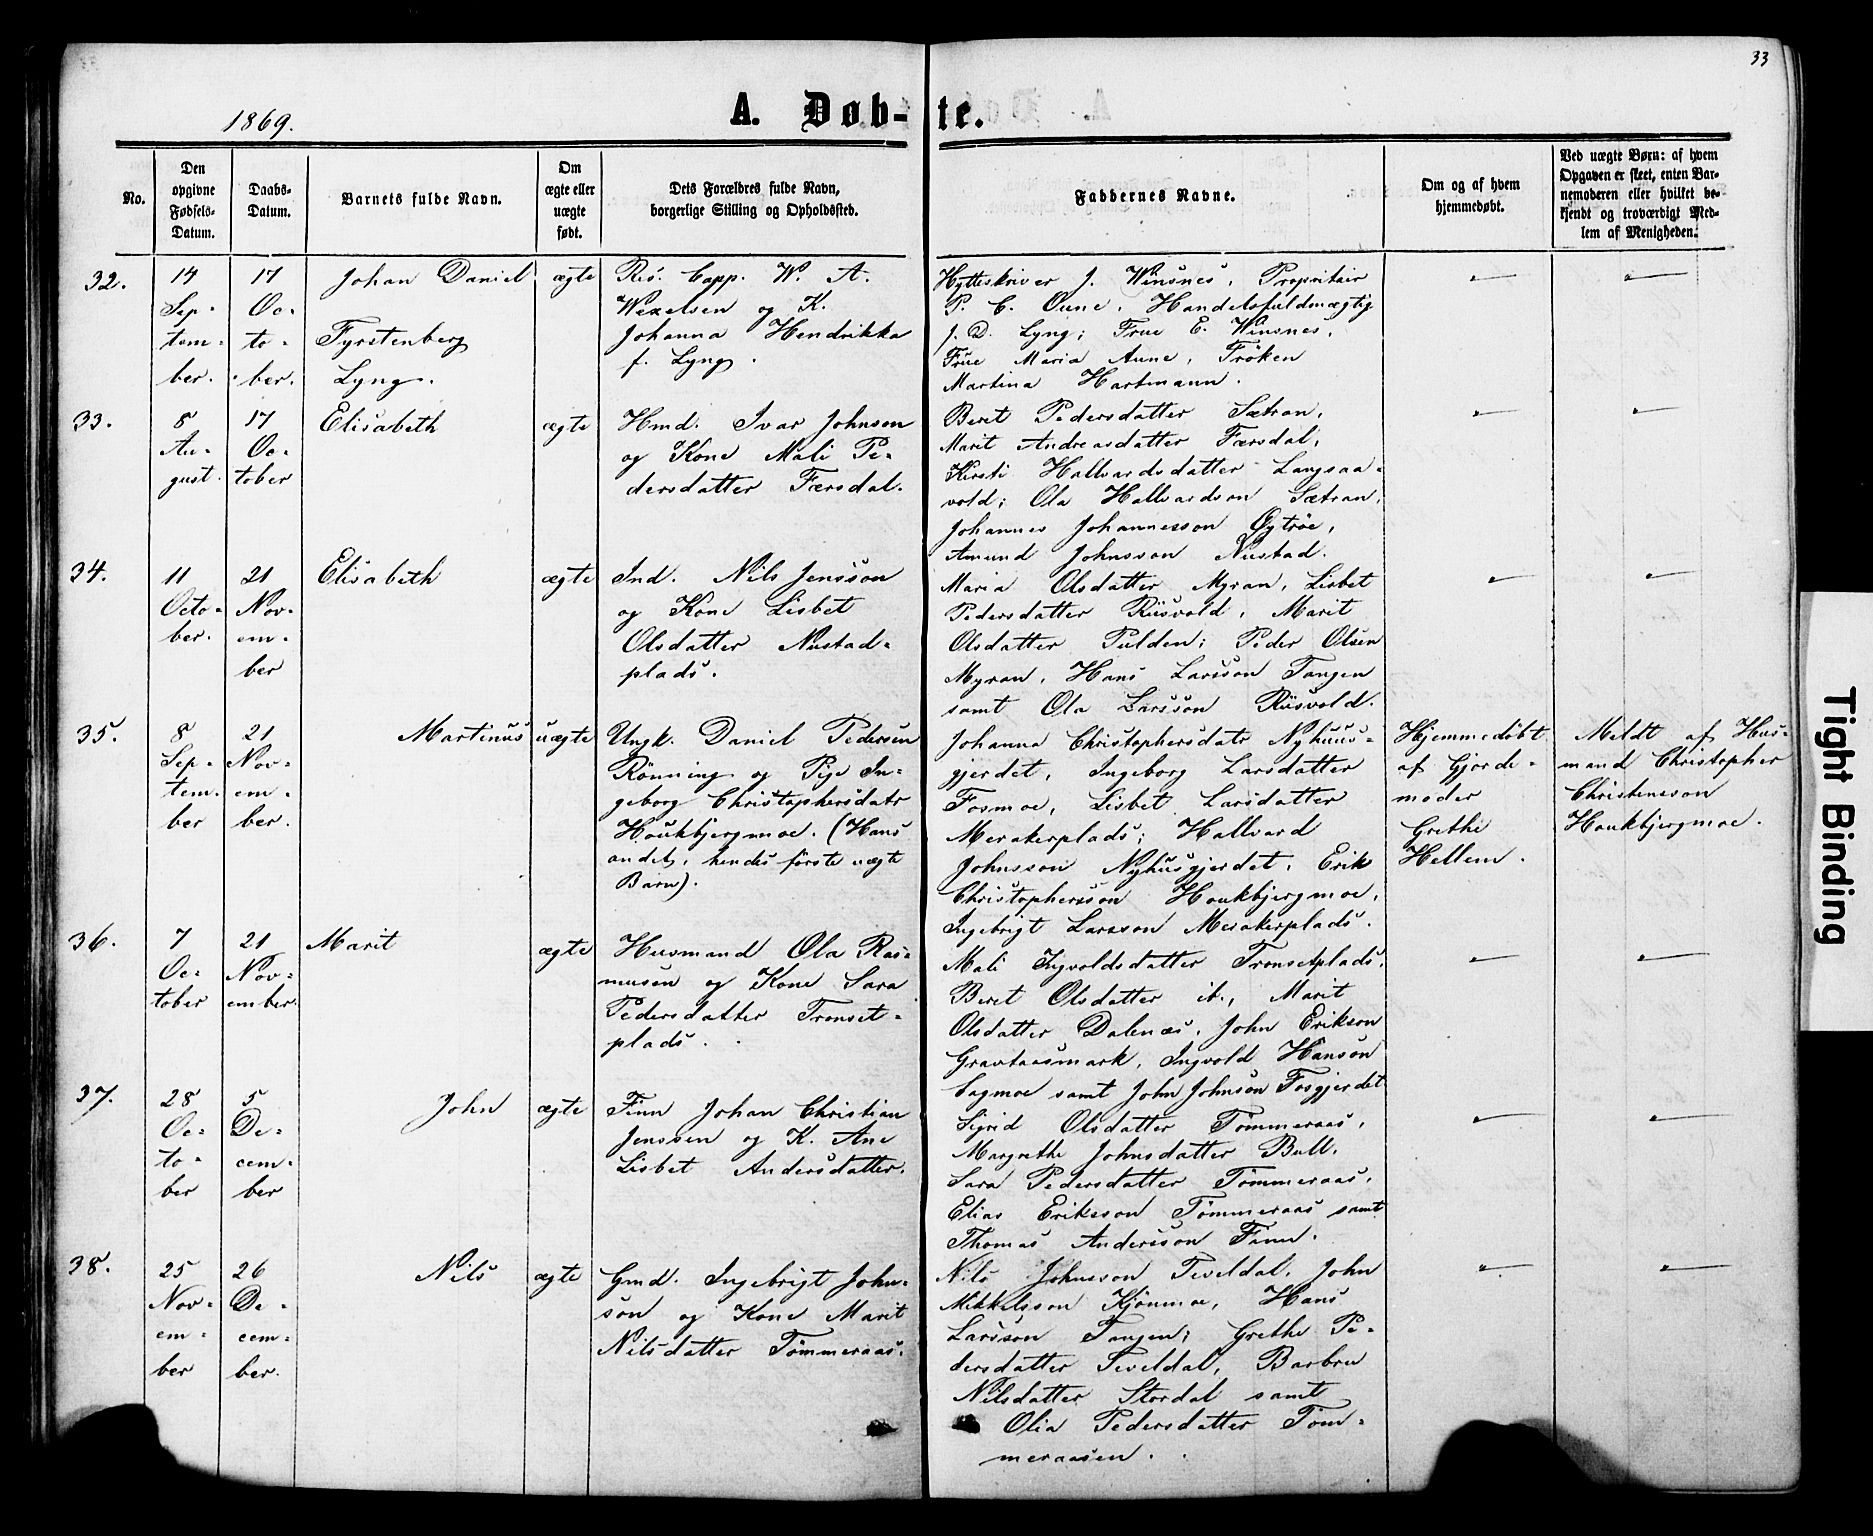 33
1869.
A. Døb-te.
No.
Den
opgivne
Fødsels-
Datum.
Daabs-
Datum.
Barnets fulde Navn.
Om
ægte eller
uægte
født.
Dets Forældres fulde Navn,
borgerlige Stilling og Opholdssted.
Faddernes Navne.
Om og af hvem
hjemmedøbt.
Ved uægte Børn: af hvem
Opgaven er skeet, enten Bar-
nemoderen eller hvilket be-
kjendt og troværdigt Med-
lem af Menigheden.
32.
14
Sep-
tem-
ber.
17
Oc-
to-
ber.
Johan Daniel
Fyrstenberg
Lyng.
ægte
Res. Capp. W. A.
Wexelsen og K.
Johanna Hendrikka
f. Lyng.
Hytteskriver J. Winsnes, Propritair
P. C. Aune, Handelsfuldmægtig
J. D. Lyng; Frue E. Winsnes,
Frue Maria Aune, Frøken
Martina Hartmann.
33.
8
Au-
gust.
17
Oc-
tober
Elisabeth
ægte
Hmd. Ivar Johnson
og Kone Mali Pe-
dersdatter Færsdal.
Beret Pedersdatter Sætran,
Marit Andreasdatter Færsdal,
Kirsti Hallvardsdatter Langsaa-
vold; Ola Hallvardson Sætran,
Johannes Johannesson Øytrøe,
Amund Johnsson Nustad.
34.
11
Octo-
ber.
21
Nov-
em-
ber
Elisabeth
ægte
Ind. Nils Jensson
og Kone Lisbet
Olsdatter Nustad-
plads.
Maria Olsdatter Myran, Lisbet
Pedersdatter Rusvold, Marit
Olsdatter Pulden; Peder Olsen
Myran, Hans Larsson Tangen
samt Ola Larsson Rusvold.
35.
8
Sep-
tem-
ber
21
Nov-
em-
ber.
Martinus
uægte
Ungk. Daniel Pedersen
Rönning og Pige In-
geborg Christophersdatr
Houkbjergmoe. (Hans
andet, hendes første uægte
Barn).
Johanna Christophersdatr Nyhuus-
gjerdet, Ingeborg Larsdatter
Fosmoe, Lisbet Larsdatter
Merakerplads; Hallvard
Johnsson Nyhusgjerdet, Erik
Christophersson Houkbjergmoe,
Ingebrigt Larsson Merakerplads.
Hjemmedöbt
af Gjorde-
moder
Grethe
Hellem.
Meldt af Hus-
mand Christopher
Christensson
Houkbjergmoe.
36.
7
Oc-
tober
21
Nov-
ember.
Marit
ægte
Husmand Ola Ras-
musen og Kone Sara
Pedersdatter Tronset-
plads.
Mali Ingvoldsdatter Tronsetplads,
Beret Olsdatter ib., Marit
Olsdatter Dalenæs, John Erikson
Gravtaasmark, Ingvold Hansön
Sagmoe samt John Johnsön Fosgjerdet
37.
28
Oc-
to-
ber
5
De-
cem-
ber
John
ægte
Finn Johan Christian
Jenssen og K. Ane
Lisbet Andersdatter.
Sigrid Olsdatter Tömmeraas,
Margrethe Johnsdatter Bull,
Sara Pedersdatter Tömmeraas,
Elias Eriksson Tömmeraas samt
Thomas Andersson Finn.
38.
25
Nov-
em-
ber
26
De-
cem-
ber.
Nils
ægte
Gmd. Ingebrigt John-
sön og Kone Marit
Nilsdatter Tömmeraas.
Nils Johnsson Teveldal, John
Mikkelsson Kjönmoe, Hans
Larsson Tangen; Grethe Pe-
dersdatter Teveldal, Barbro
Nilsdatter Stordal samt
Olia Pedersdatter Töm-
meraasen.
Tight Binding